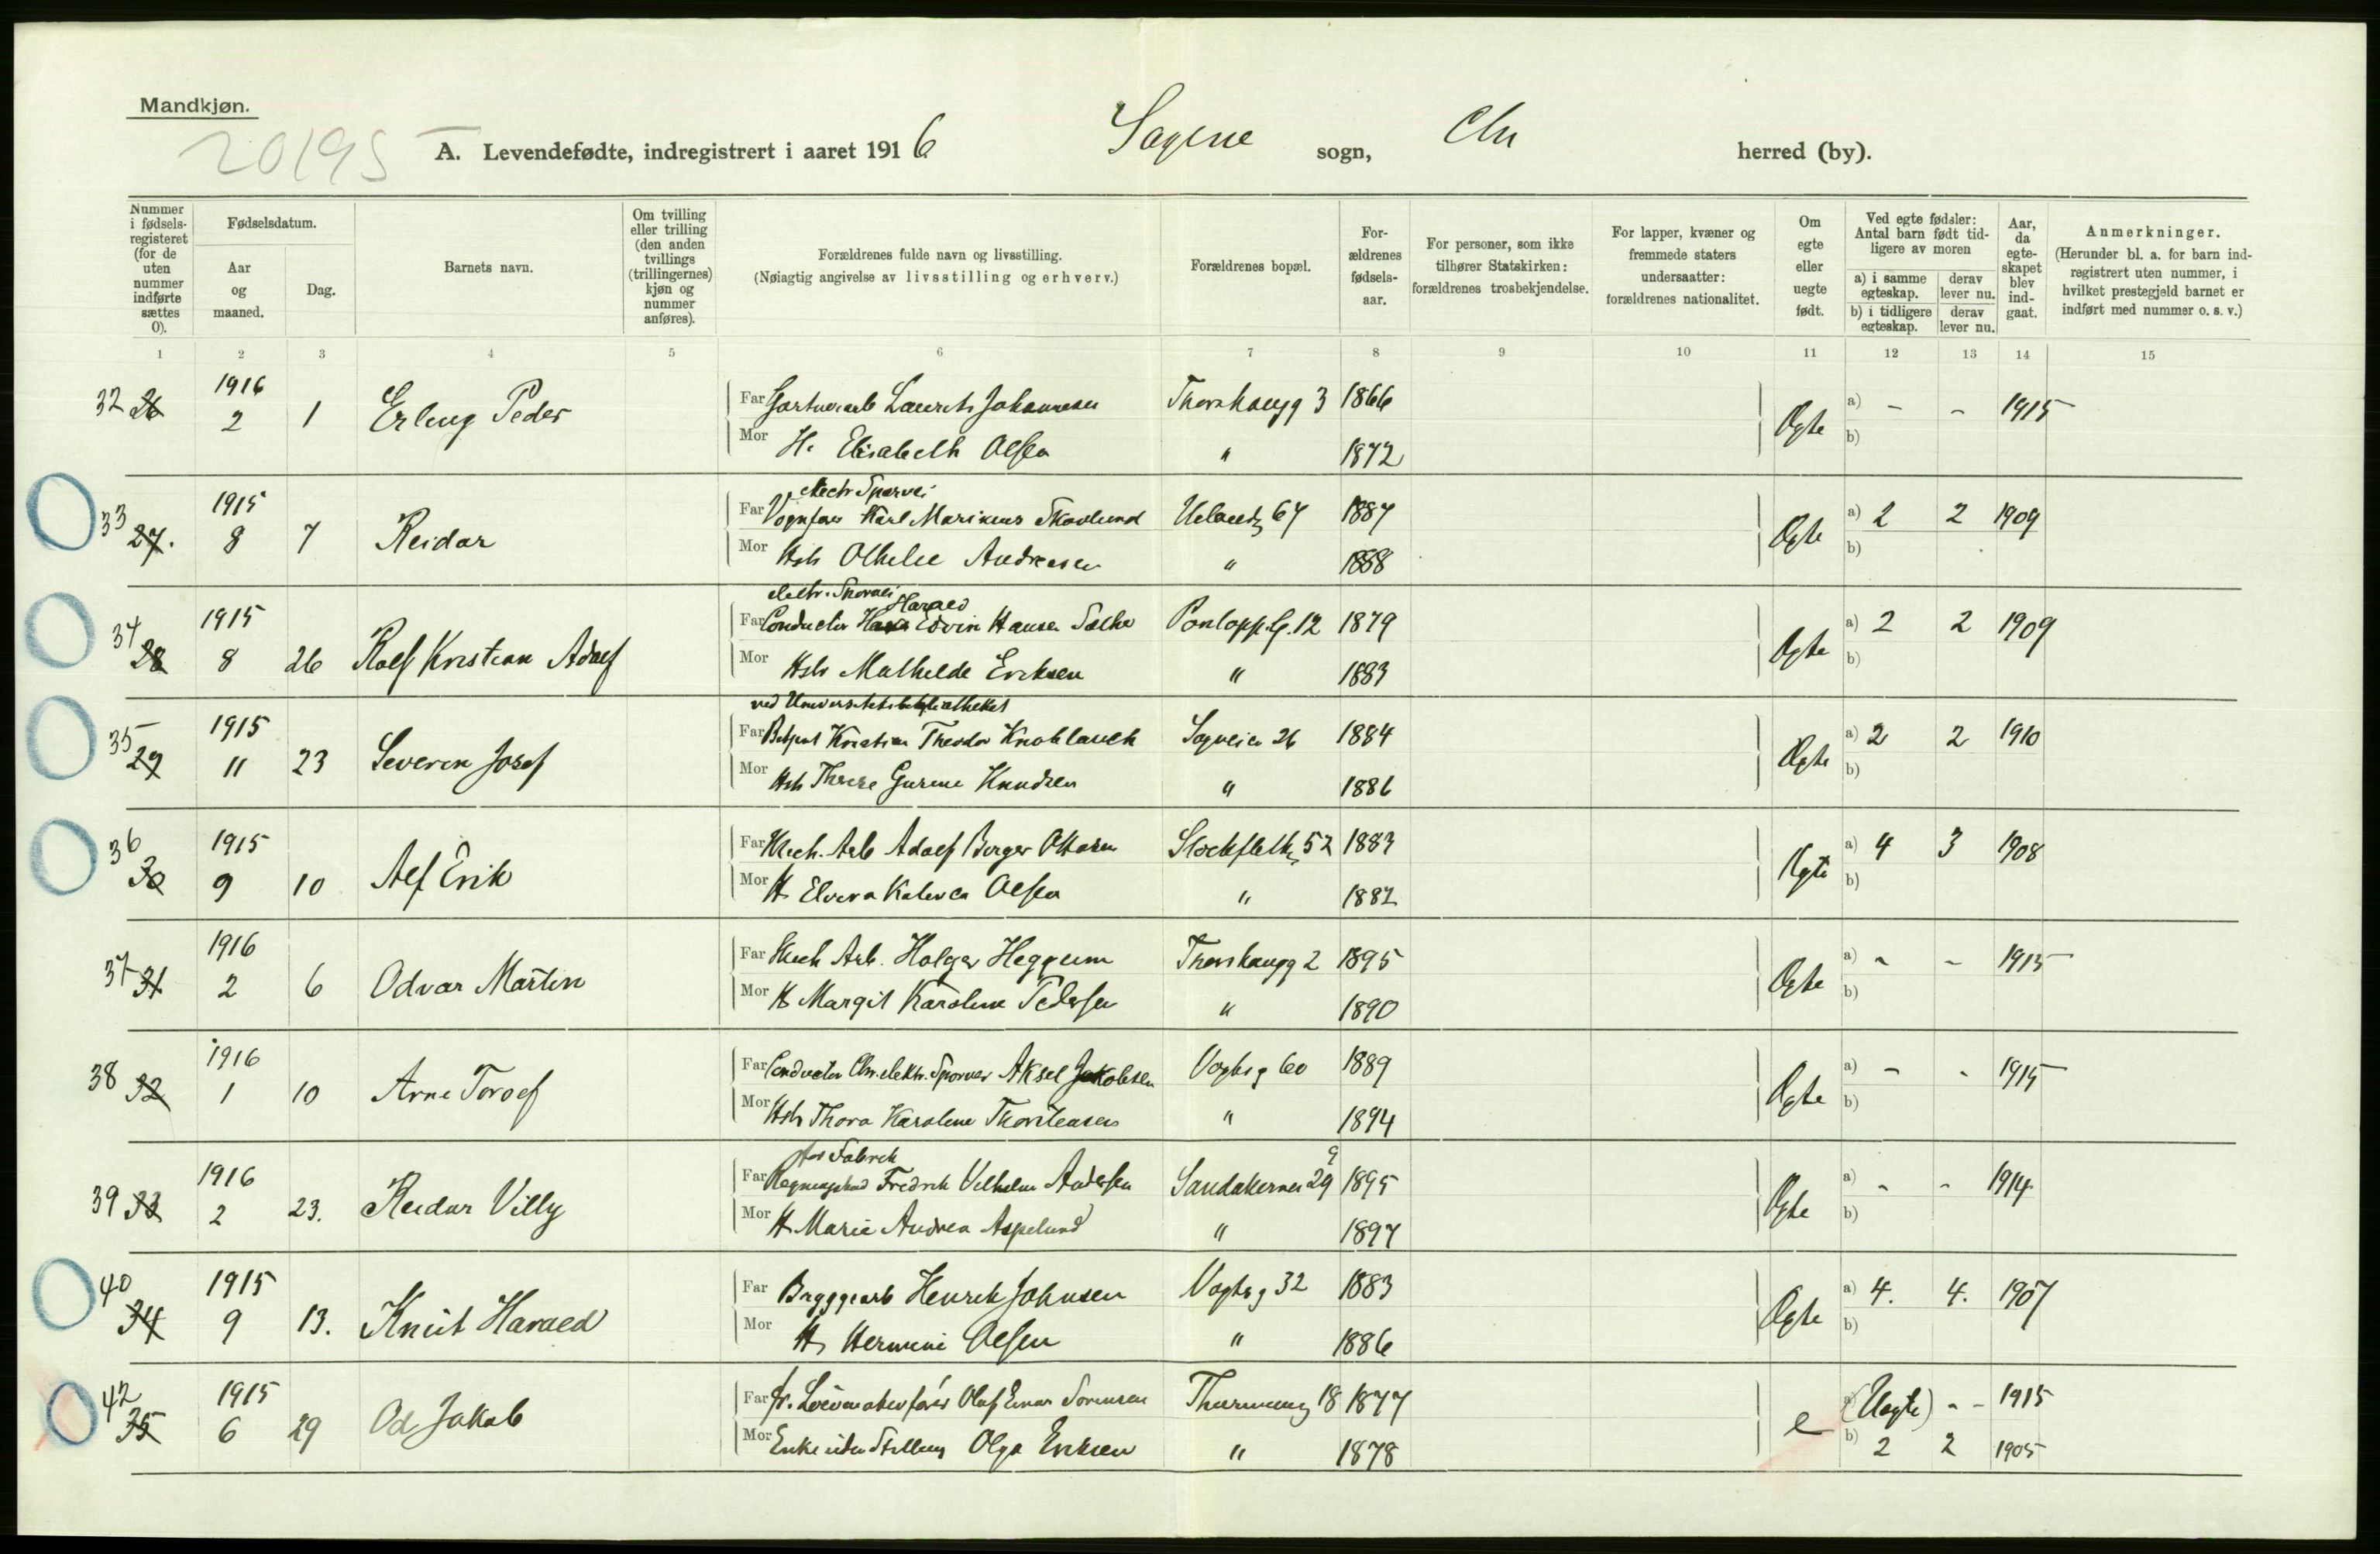 Mandkjøn.
20195
A. Levendefødte, indregistrert i aaret 1916 Sagene sogn, Chr herred (by).
Nummer i fødsels-registeret (for de uten nummer indførte sættes 0).
Fødselsdatum.
Aar og maaned.
Dag.
Barnets navn.
Om tvilling eller trilling (den anden tvillings (trillingernes) kjøn og nummer anføres).
Forældrenes fulde navn og livsstilling.
(Nøiagtig angivelse av livsstilling og erhverv.)
Forældrenes bopæl.
For-ældrenes fødsels-aar.
For personer, som ikke tilhører Statskirken: forældrenes trosbekjendelse.
For lapper, kvæner og fremmede staters undersaatter: forældrenes nationalitet.
Om egte eller uegte født.
Ved egte fødsler: Antal barn født tid-ligere av moren
a) i samme egteskap. derav lever nu.
b) i tidligere egteskap. derav lever nu.
Aar, da egte-skapet blev ind-gaat.
Anmerkninger.
(Herunder bl. a. for barn ind-registrert uten nummer, i hvilket prestegjeld barnet er indført med nummer o. s. v.)
1 2 3 4 5 6 7 8 9 10 11 12 13 14 15
32 26 1916 2 1 Erling Peder
Far Gartnerarb Laurits Johannesen Thorshaugg 3 1866 Egte a) - - 1915
Mor H. Elisabeth Olsen " 1872 b)
33 27. 1915 8 7 Reidar
electr Sporvei
Far Vognfører Karl Marinius Skovlund Uelandsg 67 1887 Egte a) 2 2 1909
Mor Hstr Othelie Andresen " 1888 b)
34 28 1915 8 26 Rolf Kristian Adolf
electr. Sporvei Harald
Far Conductør Hans Edvin Hansen 12 1879 Egte a) 2 2 1909
Mor Hstr Mathilde Eriksen " 1883 b)
35 29 1915 11 23 Severin Josef
ved Universitetsbibliotheket
Far Kristian Theodor Knoblauch Sagveien 26 1884 Egte a) 2 2 1910
Mor Hstr Therese Gurine Knudsen " 1886 b)
36 30 1915 9 10 Alf Erik
Far Mech. Arb Adolf Birger Ottosen Stockflethsg 52 1883 Egte a) 4 3 1908
Mor H Elvira Olsen " 1882 b)
37 31 1916 2 6 Odvar Martin
Far Mech Arb. Holger Heggum Thorshaugg 2 1895 Egte a) - - 1915
Mor H Margit Karoline Pedersen " 1890 b)
38 32 1916 1 10 Arne Torolf
Far Conductør Chr. elektr. Sporvei Aksel Jakobsen Vogtsg 60 1889 Egte a) - - 1915
Mor Hstr Thora Karoline Thorstensen " 1894 b)
39 33 1916 2 23. Reidar Villy
Fabrik
Far Fredrik Vilhelm Andersen Sandakerveien 29 9 1895 Egte a) - - 1914
Mor H. Marie Andrea Aspelund " 1897 b)
40 34 1915 9 13. Knut Harald
Far Bryggearb Henrik Johnsen Vogtsg 32 1883 Egte a) 4. 4. 1907
Mor H Hermine Olsen " 1886 b)
42 35 1915 6 29 Od Jakob
Far Olaf Einar Sørensen 18 1877 e a) (Uegte) - - 1915
Mor Enke uden Stilling Olga Eriksen " 1878 b) 2 2 1905